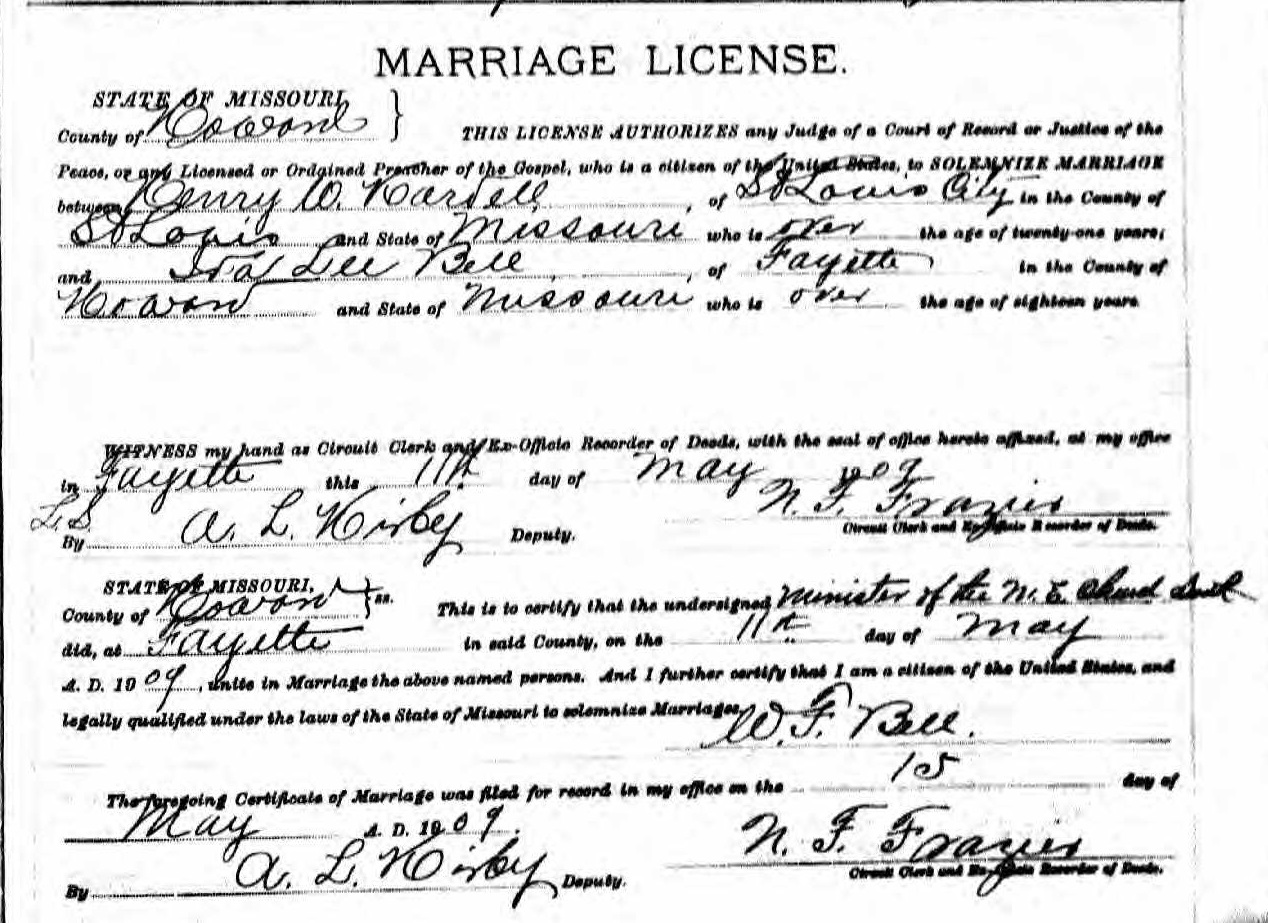 MARRIAGE LICENSE.
STATE OF MISSOURI, }
County of Howard THIS LICENSE AUTHORIZES any Judge of a Court of Record or Justice of the
Peace, or any Licensed or Ordained Preacher of the Gospel, who is a citizen of the United States, to SOLEMNIZE MARRIAGE
between Henry W. , of St Louis City in the County of
St Louis and State of Missouri who is over the age of twenty-one years;
and Iva Lee Bell , of Fayette in the County of
Howard and State of Missouri who is over the age of eighteen years.
WITNESS my hand as Circuit Clerk and Ex-Officio Recorder of Deeds, with the seal of office hereto affixed, at my office
in Fayette this 11th day of May 1909
N. F. Frazier
L.S. Circuit Clerk and Ex-Officio Recorder of Deeds.
By A. L. Kirby Deputy.
STATE OF MISSOURI, } ss.
County of Howard This is to certify that the undersigned Minister of the M. E. Church South
did, at Fayette in said County, on the 11th day of May
A. D. 1909, unite in Marriage the above named persons. And I further certify that I am a citizen of the United States, and
legally qualified under the laws of the State of Missouri to solemnize Marriages.
W. F. Bell.
The foregoing Certificate of Marriage was filed for record in my office on the 15 day of
May A. D. 1909.
N. F. Frazier
Circuit Clerk and Ex-Officio Recorder of Deeds.
By A. L. Kirby Deputy.